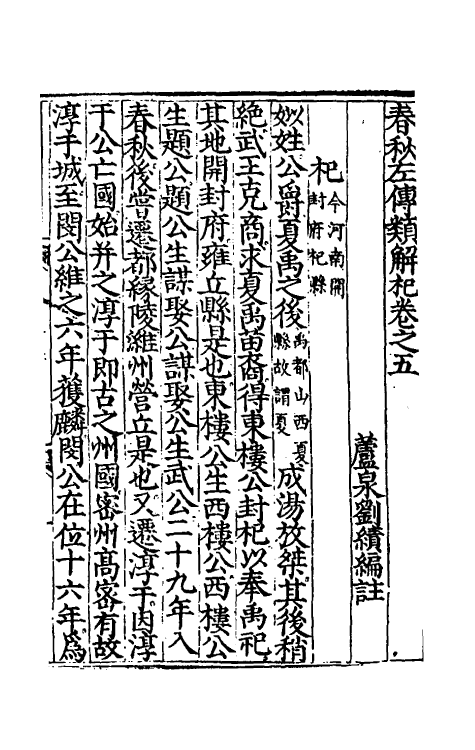 春秋左傳類解杞卷之五
蘆泉劉績編註
杞今河南開封府杞縣
姒姓公爵夏禹之後禹都山西夏縣故謂夏成湯放桀其後稍
絶武王克商求夏禹苗裔得東樓公封杞以奉禹祀
其地開封府雍丘縣是也東樓公生西樓公西樓公
生題公題公生謀娶公謀娶公生武公二十九年入
春秋後嘗遷都緣陵維州營丘是也又遷淳于因淳
于公亡國始并之淳于即古之州國密州高密有故
淳于城至閔公維之六年獲麟閔公在位十六年爲